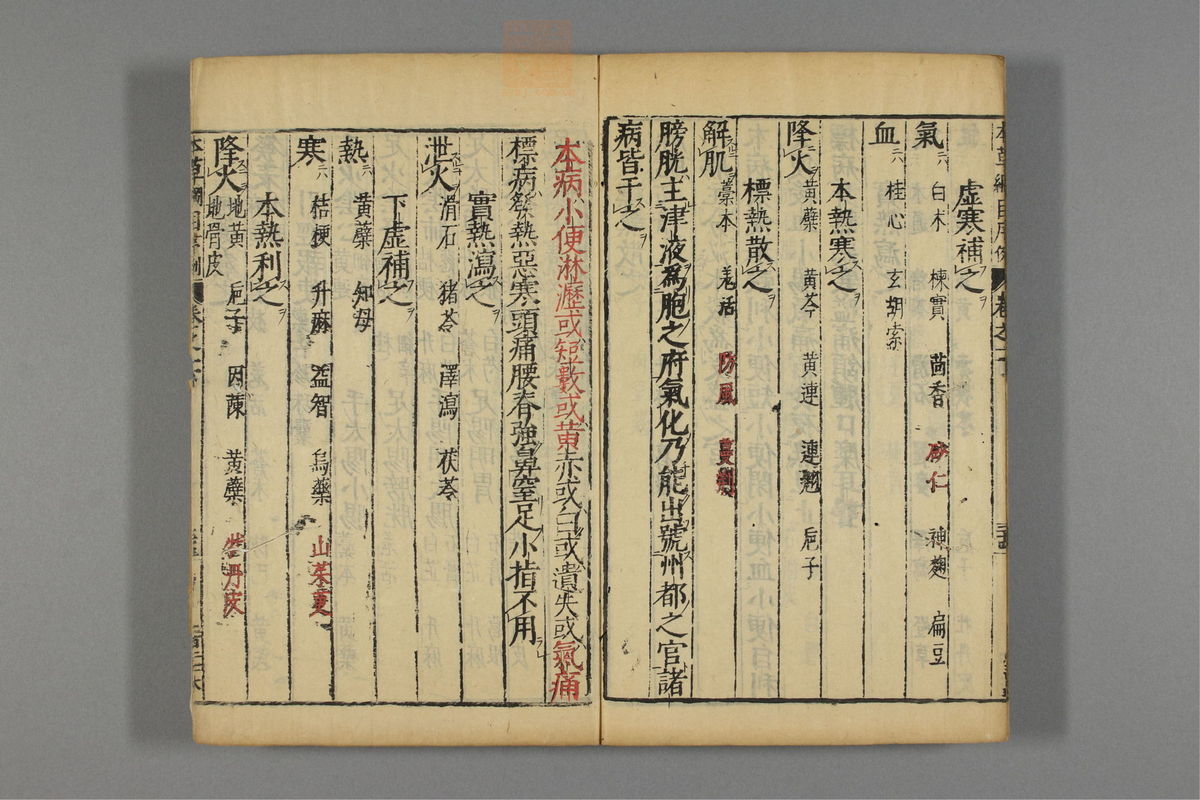 虛寒補之
氣 白木 楝實 茴香 砂仁 神麴 扁豆
血 桂心 玄胡索
本熱寒之
降火 黃蘗 黃芩 黃連 連翹 梔子
標熱散之
解肌 藁本 羌活 防風 蔓荆
膀胱主津液爲胞之府氣化乃能出號州都之官諸
病皆干之
本病小便淋瀝或短數或黃赤或白或遺失或氣痛
標病發熱惡寒頭痛腰脊強鼻窒足小指不用
實熱瀉之
泄火 滑石 猪苓 澤瀉 茯苓
下虛補之
熱 黃蘗 知母
寒 桔梗 升麻 益智 烏藥 山茱萸
本熱利之
降火 地黃 梔子 因蔯 黃蘗 牡丹皮 地骨皮